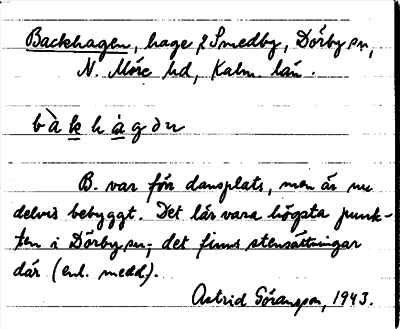 Backhagen, hage i Smedby, Dörby sn,
N. Möre hd, Kalm. län.
bà k h à g ə n
B. var förr dansplats, men är nu
delvis bebyggt. Det lär vara högsta punk-
ten i Dörby sn; det finns stensättningar
där (enl. medd.).
Astrid Göransson, 1943.